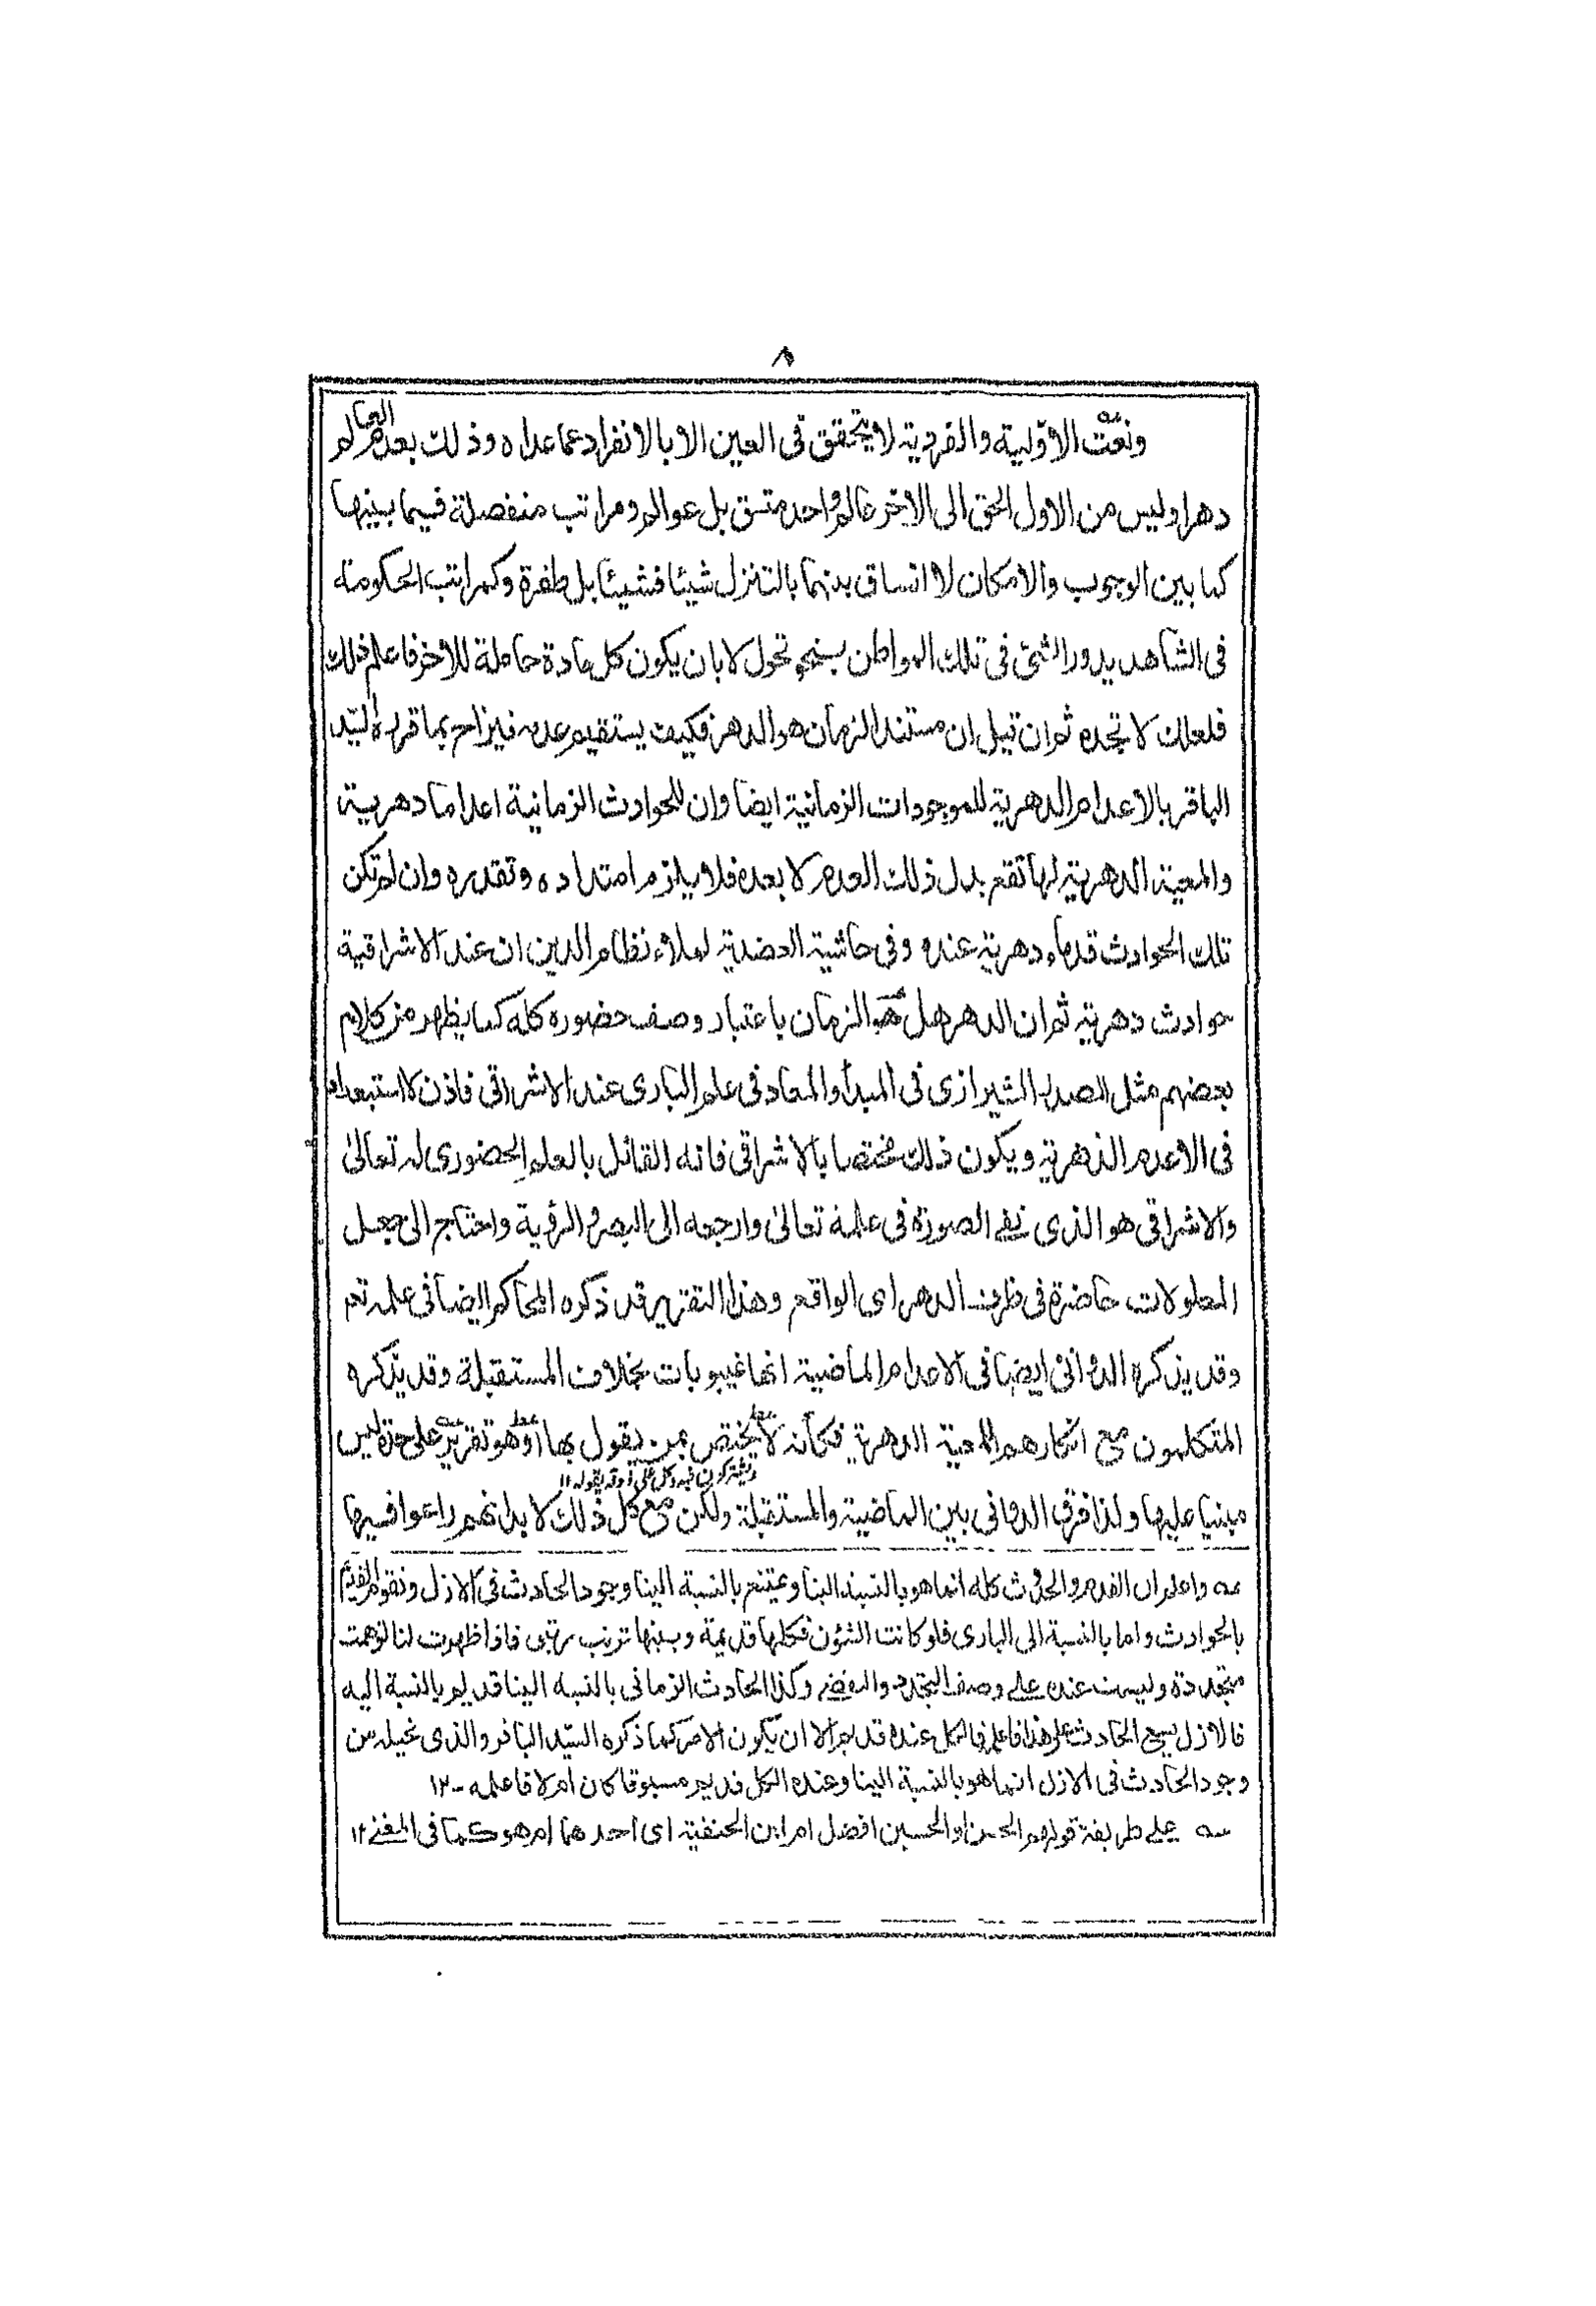 ٨
ونعت الاوّلية والفردية لا يتحقق فى العين الا بالانفراد عما عداه وذلك بعدم العالم
دهرا وليس من الاول الحق الى الاخر عالم واحد متسق بل عوالم ومراتب منفصلة فيما بينها
كما بين الوجوب والامكان لا اتساق بينهما بالتنزل شيئا فشيئا بل طفرة وكمراتب الحكومة
فى الشاهد يدور الشئ فى تلك المواطن بنحو تحول لا بان يكون كل مادة حاملة للاخر فاعلم ذلك
فلعلك لا تجده ثم ان قيل ان مستند الزمان هو الدهر فكيف يستقيم عدمه فيزاحم بما قرره السيّد
الباقر بالاعدام الدهرية للموجودات الزمانية ايضا وان للحوادث الزمانية اعداما دهرية
والمعية الدهرية لها تقع بدل ذلك العدم لا بعده فلا يلزم امتداده وتقدره وان لم تكن
تلك الحوادث قدماء دهرية عنده وفى حاشية العضدية لملاء نظام الدين ان عند الاشراقية
حوادث دهرية ثم ان الدهر هل هو الزمان باعتبار وصف حضوره كله كما يظهر من كلام
بعضهم مثل الصدر الشيرازى فى المبدأ والمعاد فى علم البارى عند الاشراقى فاذن لا استبعاد
فى الاعدام الدهرية ويكون ذلك مختصا بالاشراقى فانه القائل بالعلم الحضورى له تعالىٰ
والاشراقى هو الذى نفے الصورة فى علمه تعالىٰ وارجعه الى البصر والرؤية واحتاج الى جعل
المعلولات حاضرة فى ظرف الدهر اى الواقع وهذا التقرير قد ذكره المحاكم ايضا فى علمه تعم
وقد يذكره الدوانى ايضا فى الاعدام الماضية انها غيبوبات بخلاف المستقبلة وقد يذكره
المتكلمون مع انكارهم المعية الدهرية فكأنه لا يختص بمن يقول بها او هو تقرير على حدة ليس
يشتركون فيه وكل على ذوقه يقوله ١٢
مبنيا عليها ولذا فرق الدوانى بين الماضية والمستقبلة ولكن مع كل ذلك لا بد انهم راعوا فيها
عه واعلم ان القدم والحدوث كله انما هو بالنسبة الينا ويمتنع بالنسبة الينا وجود الحادث فى الازل ونقوله القديم
بالحوادث واما بالنسبة الى البارى فلو كانت الشؤن فكلها قديمة وبينها ترتب رتبى فاذا ظهرت لنا توهمت
متجددة وليست عنده علے وصف التجدد والتقضے وكذا الحادث الزمانى بالنسبه الينا قديم بالنسبة اليه
فالازل يسع الحادث على هذا فاعلم فالكل عنده قديم الا ان يكون الامر كما ذكره السيّد الباقر والذى نحيله من
وجود الحادث فى الازل انما هو بالنسبة الينا وعنده الكل قديم مسبوقا كان ام لا فاعلمه ١٢
سه علے طريقة قولهم الحسن او الحسين افضل ام ابن الحنفية اى احدهما ام هو كما فى المغنے ١٢